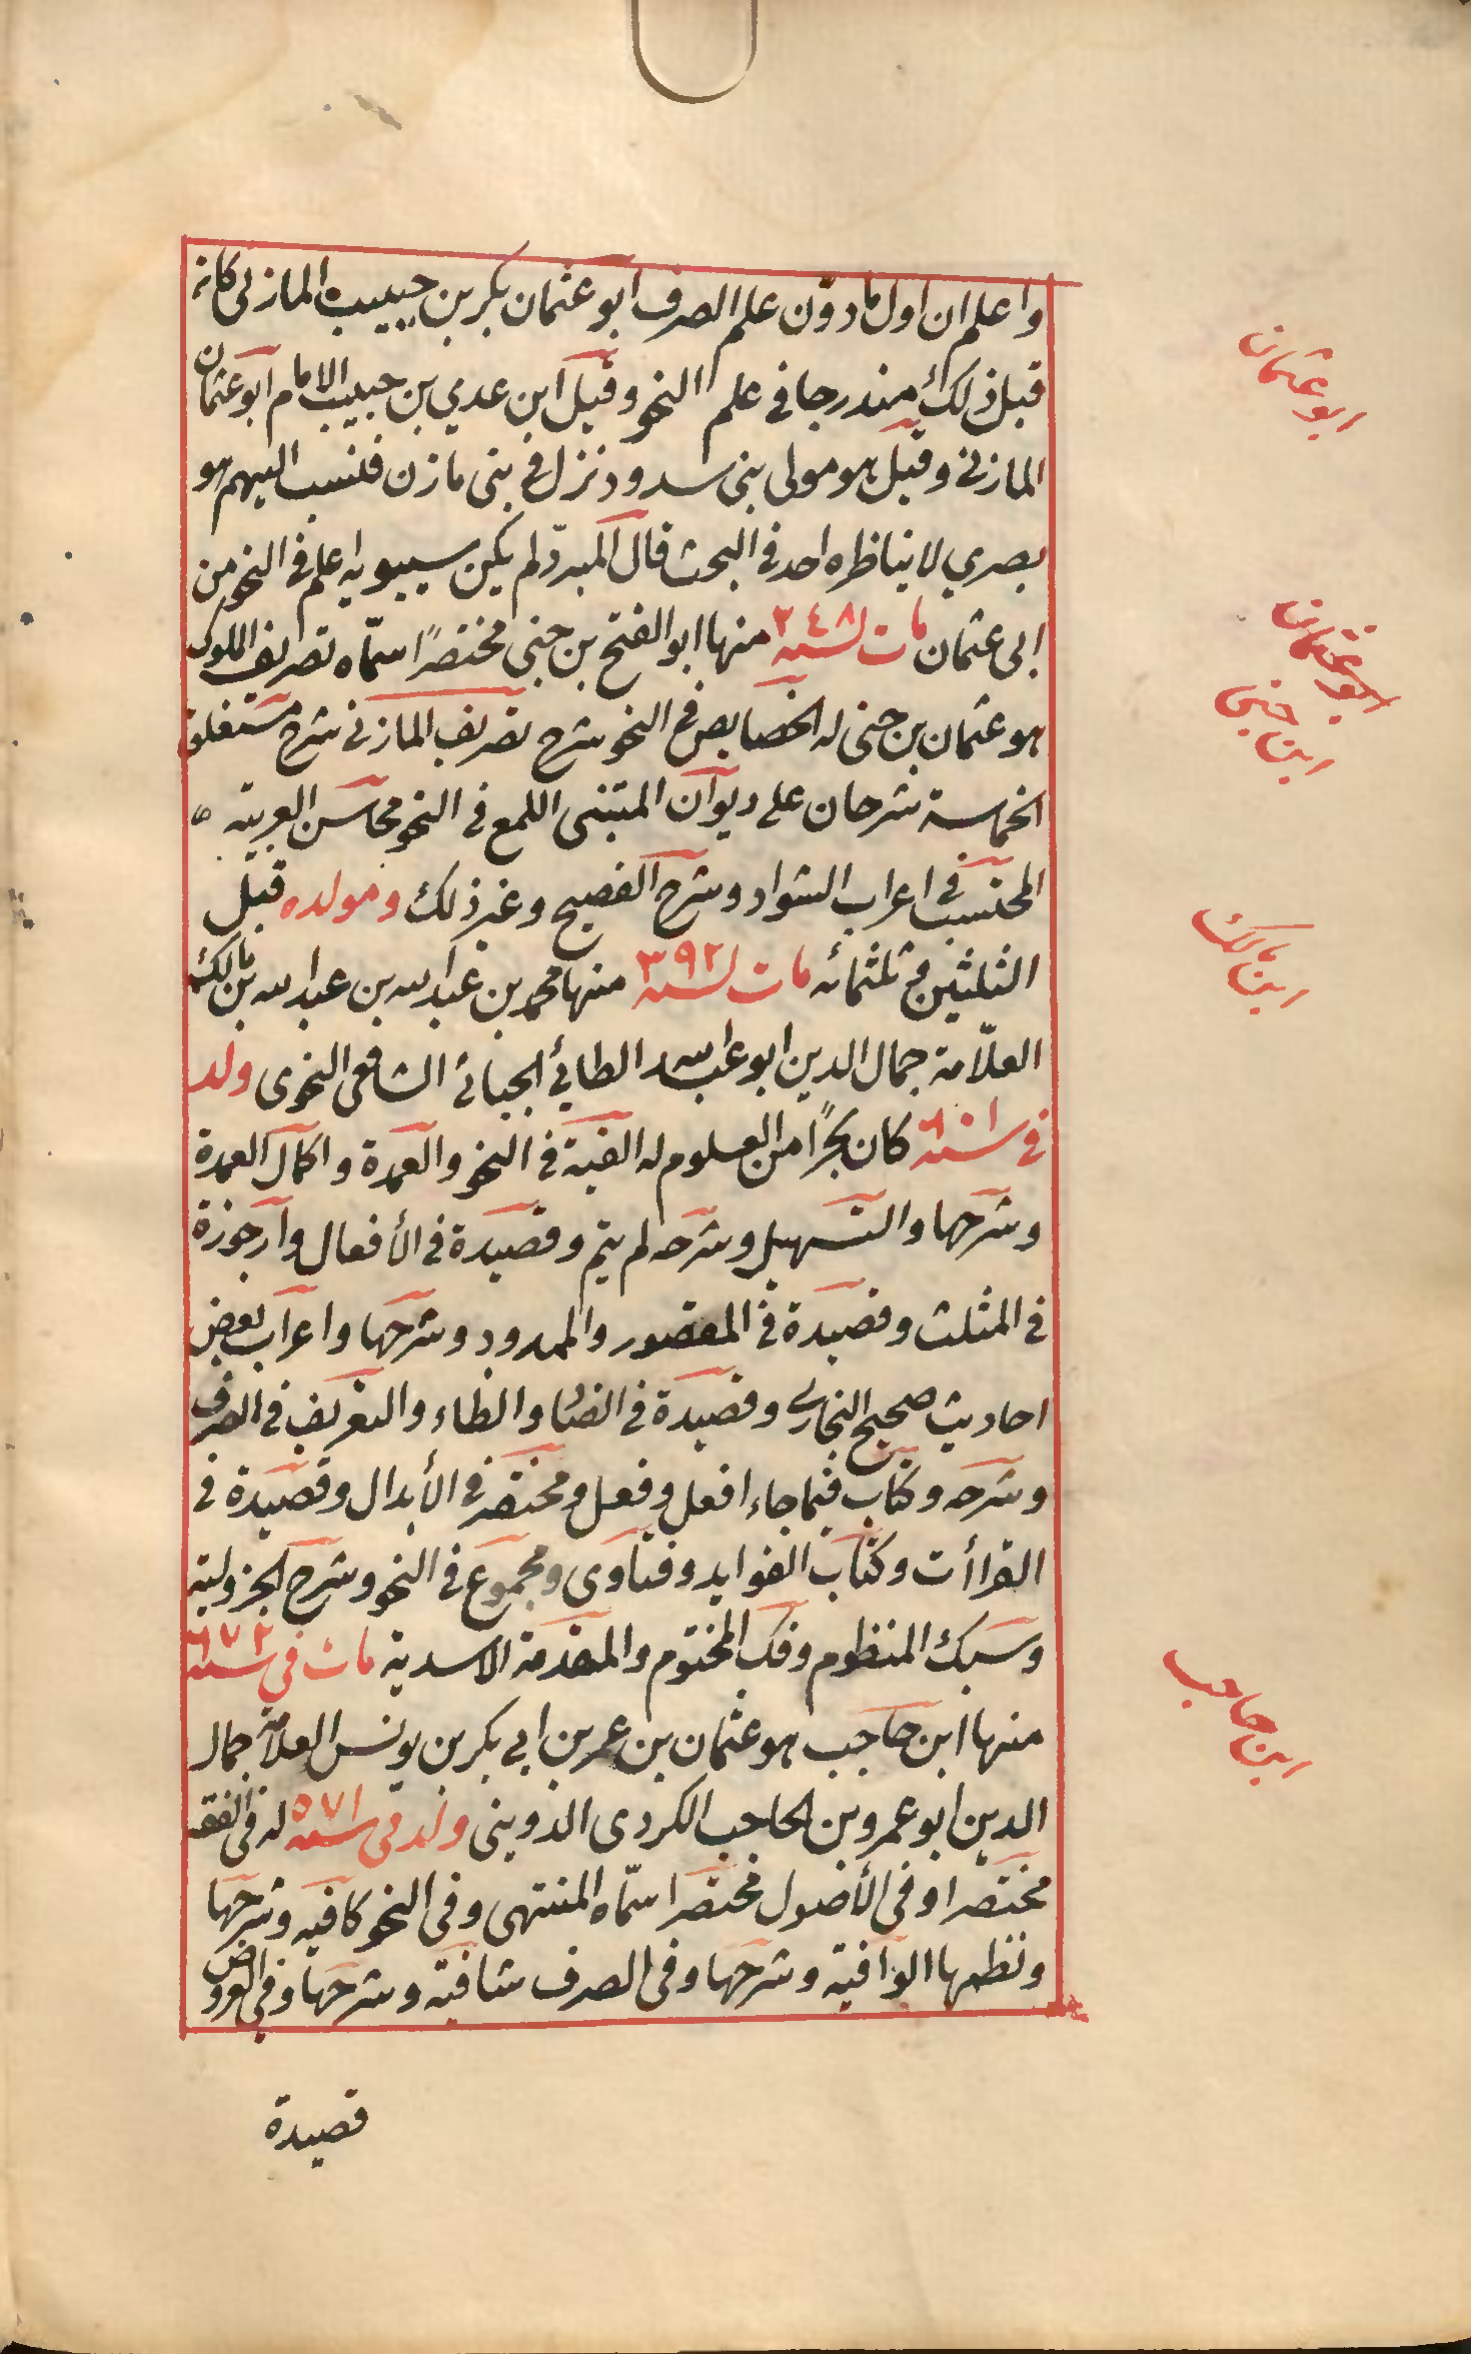 واعلم ان اول ما دوّن علم الصرف ابو عثمان بكر بن حبيب المازنى كانه
قبل ذلك مندرجا فى علم النحو وقيل ابن عدي بن حبيب الامام ابو عثمان
المازنى وقيل هو مولى بنى سدود نزل فى بنى مازن فنسب اليهم هو
بصري لا يناظره احد فى البحث قال المبرّد لم يكن سيبويه اعلم فى النحو من
ابى عثمان مات لسنه ٢٤٨ منها ابو الفتح بن جنى مختصرًا سمّاه تصريف الملوك
هو عثمان بن جنى له الخصايص فى النحو شرح تصريف المازنى شرح مستغلق
الحماسة شرحان على ديوان المتنبى اللمع فى النحو محاسن العربية
المحتسب فى اعراب الشواد وشرح الفصيح وغير ذلك ومولده قبل
الثلثين فى ثلثمائه مات لسنه ٣٩٢ منها محمد بن عبد الله بن عبد الله بن مالك
العلّامة جمال الدين ابو عبد الله الطائي الجيانى الشافعى النحوى ولد
فى سنه ٦٠١ كان بحرًا من العلوم له الفية فى النحو والعمدة واكمال العمدة
وشرحها والتسهيل وشرحه لم يتم وقصيدة فى الأفعال وارجوزة
فى المثلث وقصيدة فى المقصور والممدود وشرحها واعراب بعض
احاديث صحيح البخارى وقصيدة فى الضاد والظاء والتعريف فى الصرف
وشرحه وكتاب فيما جاء افعل وفعل ومختصر فى الأبدال وقصيدة فى
القراأت وكتاب الفوايد وفتاوى ومجموع فى النحو وشرح الجزولية
وسبك المنظوم وفك المختوم والمقدمة الاسدية مات فى سنه ٦٧٢
منها ابن حاجب هو عثمان بن عمر بن ابي بكر بن يونس العلامة جمال
الدين ابو عمرو بن الحاجب الكردى الدوينى ولد فى سنه ٥٧١ له فى الفقه
مختصرا وفى الأصول مختصرا سمّاه المنتهى وفى النحو كافيه وشرحها
ونظمها الوافية وشرحها وفى الصرف شافية وشرحها وفى العروض
قصيدة
ابو عثمان
ابن جنى
ابن مالك
ابن حاجب